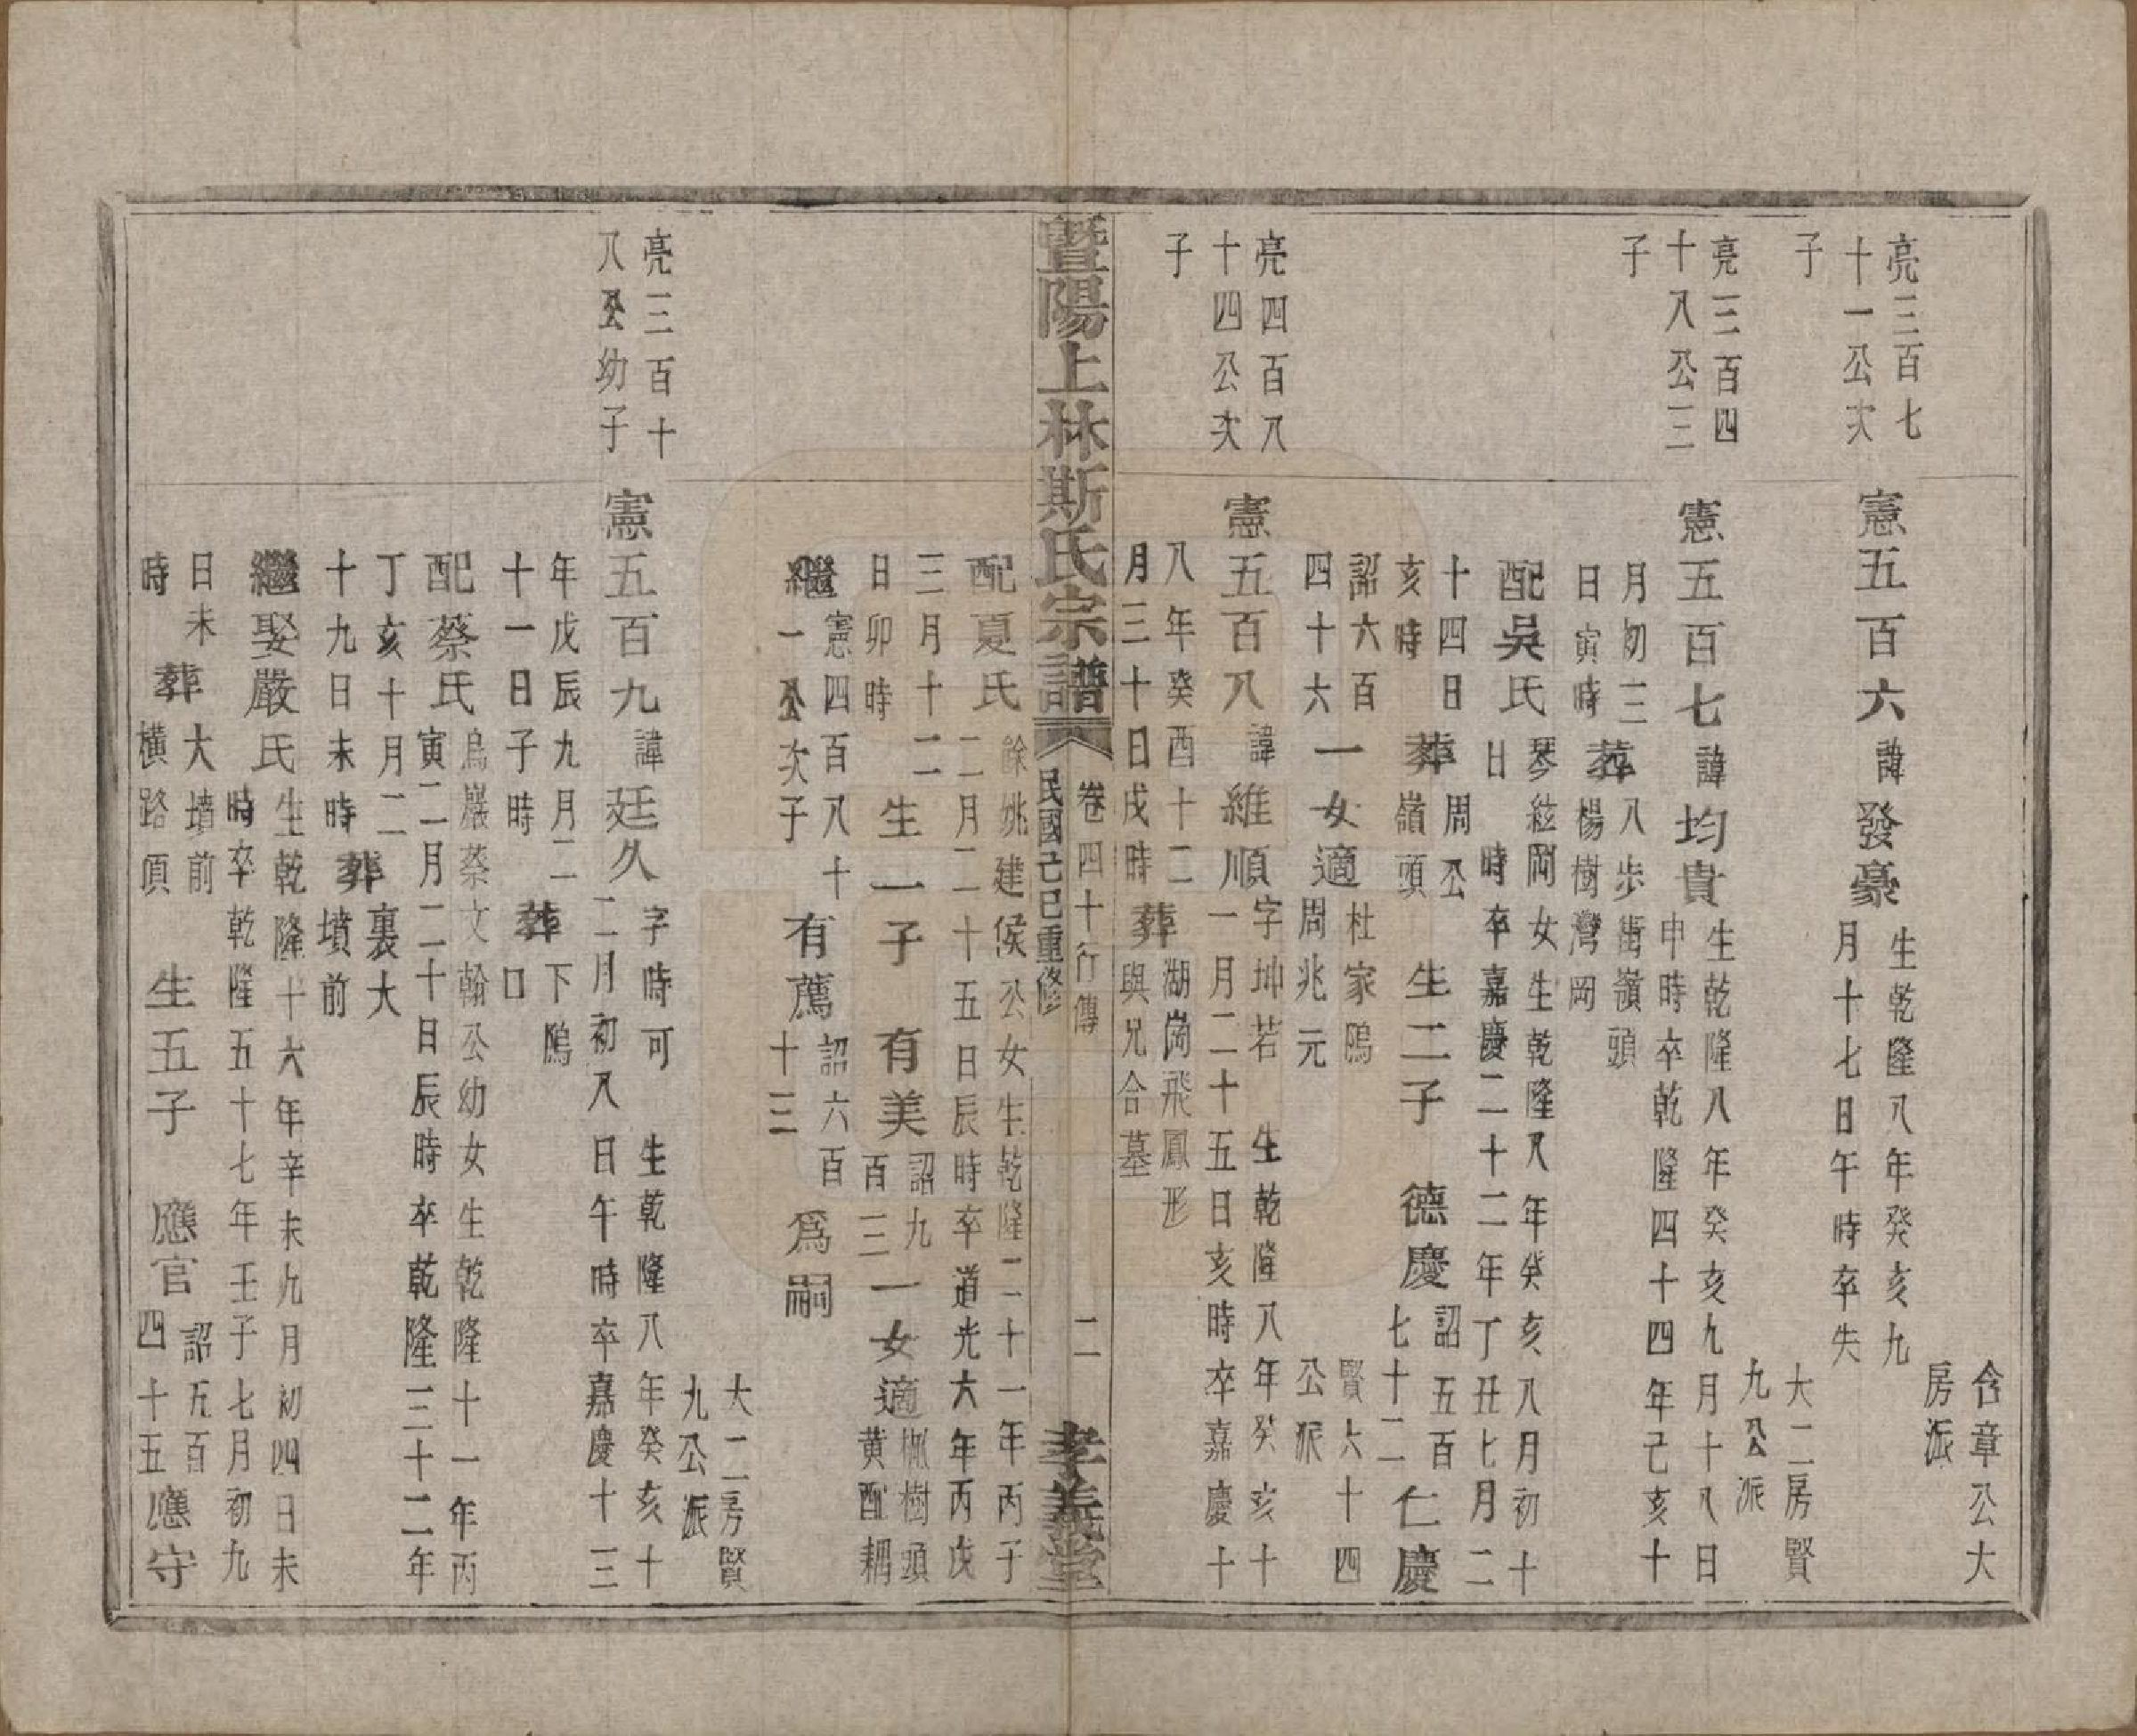 含章公大
房派
亮三百七
十一公次
子
憲五百六諱發豪
生乾隆八年癸亥九
月十七日午時卒失
大二房賢
九公派
亮三百四
十八公三
子
憲五百七諱均貴
生乾隆八年癸亥九月十八日
申時卒乾隆四十四年己亥十
月初三
日寅時
葬
八步街嶺頭
楊樹灣岡
配吳氏
琴絃岡女生乾隆八年癸亥八月初十
日 時卒嘉慶二十二年丁丑七月二
十四日
亥時
葬
周公
嶺頭
生二子 德慶
詔五百
七十二
仁慶
詔六百
四十六
一女適
杜家鴟
周兆元
賢六十四
公派
亮四百八
十四公次
子
憲五百八諱維順
字坤若 生乾隆八年癸亥十
一月二十五日亥時卒嘉慶十
八年癸酉十二
月三十日戌時
葬
湖崗飛鳳形
與兄合墓
暨陽上林斯氏宗譜
卷四十行傳
民國己巳重修
二
孝義堂
配夏氏
餘姚建侯公女生乾隆二十一年丙子
二月二十五日辰時卒道光六年丙戌
三月十二
日卯時
生一子 有美
詔九
百三
一女適
楓樹頭
黄配耦
繼
憲四百八十
一公次子
有薦
詔六百
十三
爲嗣
大二房賢
九公派
亮三百十
八公幼子
憲五百九諱廷久
字時可 生乾隆八年癸亥十
二月初八日午時卒嘉慶十三
年戊辰九月二
十一日子時
葬
下鴟
口
配蔡氏
烏巖蔡文翰公幼女生乾隆十一年丙
寅二月二十日辰時卒乾隆三十二年
丁亥十月二
十九日未時
葬
裏大
墳前
繼娶嚴氏
生乾隆十六年辛未九月初四日未
時卒乾隆五十七年壬子七月初九
日未
時
葬
大墳前
橫路頂
生五子 應官
詔五百
四十五
應守